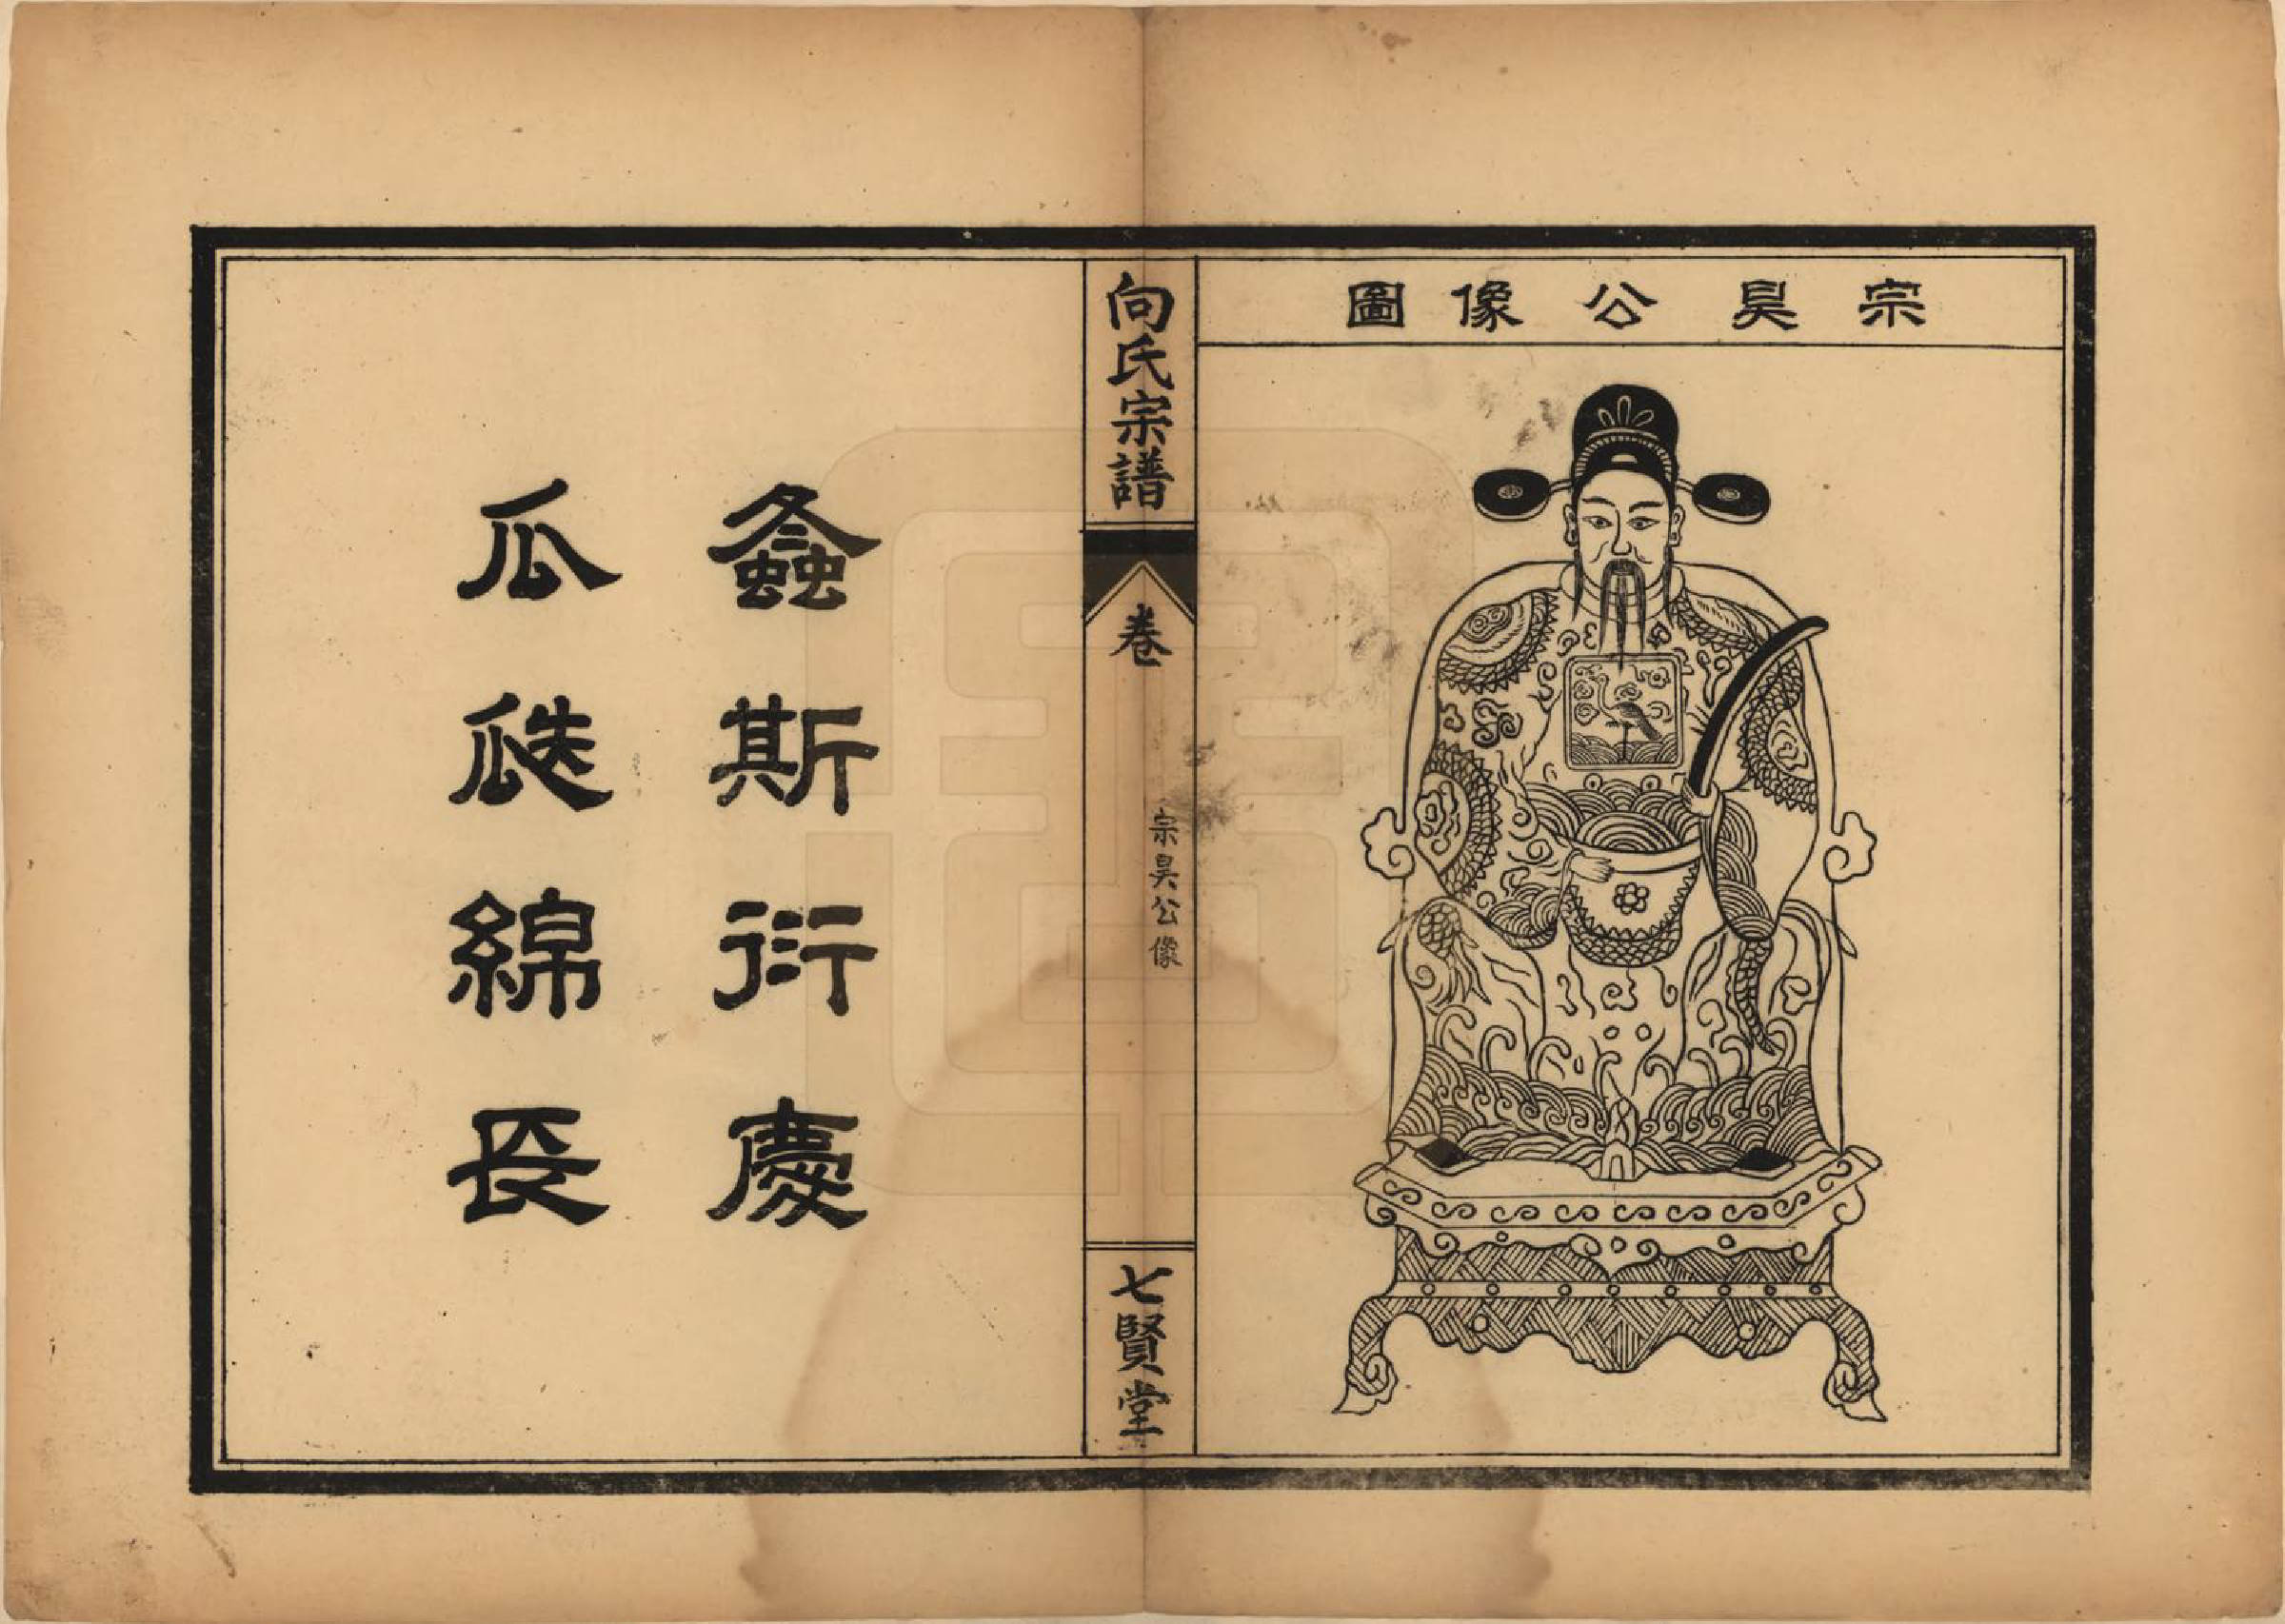 宗昊公像圖
向氏宗譜
卷
宗昊公像
七賢堂
螽斯衍慶
瓜瓞綿長